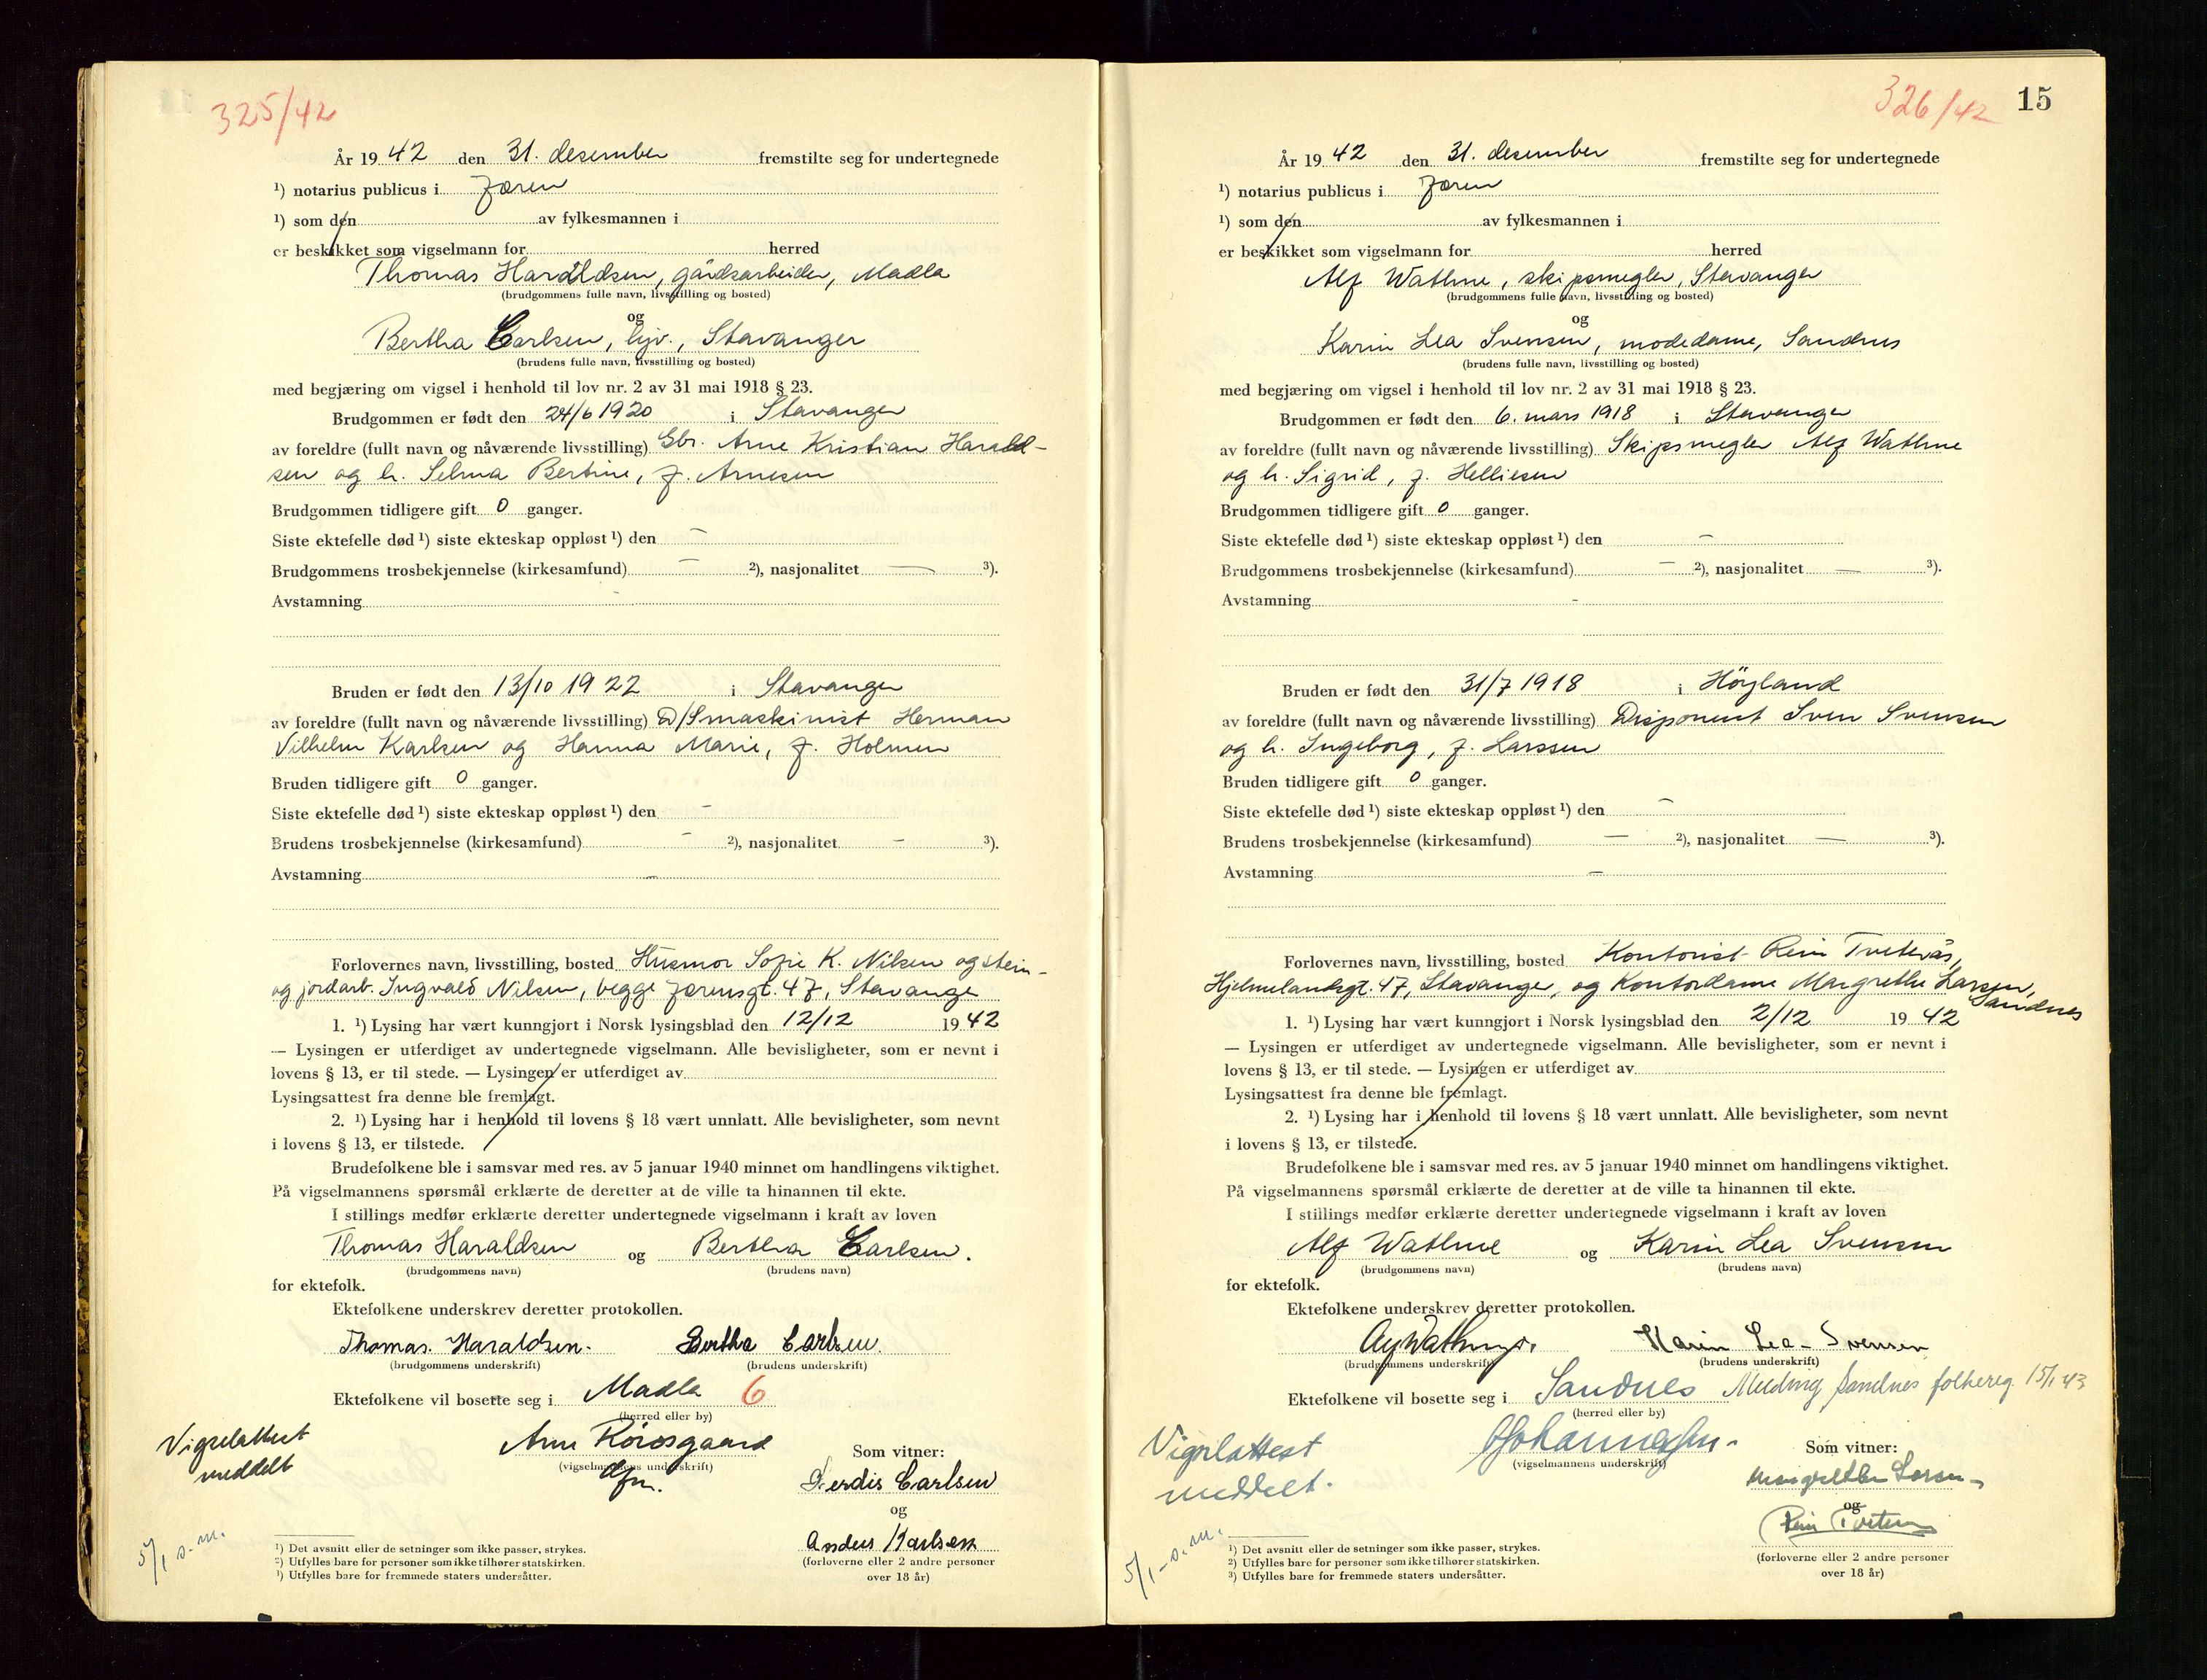 325/42
År 19 42 den 31. desember fremstilte seg for undertegnede
¹) notarius publicus i Jæren
¹) som den av fylkesmannen i
er beskikket som vigselmann for herred
Thomas Haraldsen, gårdsarbeider, Madla
(brudgommens fulle navn, livsstilling og bosted)
og
Bertha Carlsen, hjv., Stavanger
(brudens fulle navn, livsstilling og bosted)
med begjæring om vigsel i henhold til lov nr. 2 av 31 mai 1918 § 23.
Brudgommen er født den 24/6 1920 i Stavanger
av foreldre (fullt navn og nåværende livsstilling) Gbr. Arne Kristian Harald-
sen og h. Selma Bertine, f. Arnesen
Brudgommen tidligere gift 0 ganger.
Siste ektefelle død ¹) siste ekteskap oppløst ¹) den –
Brudgommens trosbekjennelse (kirkesamfund) – ²), nasjonalitet — ³).
Avstamning -
Bruden er født den 13/10 1922 i Stavanger
av foreldre (fullt navn og nåværende livsstilling) D/Smaskinist Herman
Vilhelm Karlsen og Hanna Marie, f. Holmen
Bruden tidligere gift 0 ganger.
Siste ektefelle død ¹) siste ekteskap oppløst ¹) den –
Brudens trosbekjennelse (kirkesamfund) – ²), nasjonalitet – ³).
Avstamning –
Forlovernes navn, livsstilling, bosted Husmor Sofie K. Nilsen og stein-
og jordarb. Ingvald Nilsen, begge Jærensgt. 47, Stavanger
1. ¹) Lysing har vært kunngjort i Norsk lysingsblad den 12/12 19 42
— Lysingen er utferdiget av undertegnede vigselmann. Alle bevisligheter, som er nevnt i
lovens § 13, er til stede. — Lysingen er utferdiget av
Lysingsattest fra denne ble fremlagt.
2. ¹) Lysing har i henhold til lovens § 18 vært unnlatt. Alle bevisligheter, som nevnt
i lovens § 13, er tilstede.
Brudefolkene ble i samsvar med res. av 5 januar 1940 minnet om handlingens viktighet.
På vigselmannens spørsmål erklærte de deretter at de ville ta hinannen til ekte.
I stillings medfør erklærte deretter undertegnede vigselmann i kraft av loven
Thomas Haraldsen og Bertha Carlsen.
(brudgommens navn) (brudens navn)
for ektefolk.
Ektefolkene underskrev deretter protokollen.
Thomas. Haraldsen. Bertha Carlsen.
(brudgommens underskrift) (brudens underskrift)
Ektefolkene vil bosette seg i Madla 6
(herred eller by)
Vigselattest
meddelt
Arne Rörosgaard
(vigselmannens underskrift)
dfm.
Som vitner:
Gerdis Carlsen
og
Anders Karlsen
(forloverne eller 2 andre personer
over 18 år)
5/1 s.m.
¹) Det avsnitt eller de setninger som ikke passer, strykes.
²) Utfylles bare for personer som ikke tilhører statskirken.
³) Utfylles bare for fremmede staters undersåtter.
326/42 15
År 19 42 den 31. desember fremstilte seg for undertegnede
¹) notarius publicus i Jæren
¹) som den av fylkesmannen i
er beskikket som vigselmann for herred
Alf Wathne, skipsmegler, Stavanger
(brudgommens fulle navn, livsstilling og bosted)
og
Karin Lea Svensen, modedame, Sandnes
(brudens fulle navn, livsstilling og bosted)
med begjæring om vigsel i henhold til lov nr. 2 av 31 mai 1918 § 23.
Brudgommen er født den 6. mars 1918 i Stavanger
av foreldre (fullt navn og nåværende livsstilling) Skipsmegler Alf Wathne
og h. Sigrid, f. Helliesen
Brudgommen tidligere gift 0 ganger.
Siste ektefelle død ¹) siste ekteskap oppløst ¹) den –
Brudgommens trosbekjennelse (kirkesamfund) – ²), nasjonalitet — ³).
Avstamning -
Bruden er født den 31/7 1918 i Höyland
av foreldre (fullt navn og nåværende livsstilling) Disponent Sven Svensen
og h. Ingeborg, f. Larssen
Bruden tidligere gift 0 ganger.
Siste ektefelle død ¹) siste ekteskap oppløst ¹) den –
Brudens trosbekjennelse (kirkesamfund) — ²), nasjonalitet — ³).
Avstamning –
Forlovernes navn, livsstilling, bosted Kontorist Rein Tveterås,
Hjelmelandsgt. 47, Stavanger, og Kontordame Margrethe Larsen,
Sandnes
1. ¹) Lysing har vært kunngjort i Norsk lysingsblad den 2/12 19 42
— Lysingen er utferdiget av undertegnede vigselmann. Alle bevisligheter, som er nevnt i
lovens § 13, er til stede. — Lysingen er utferdiget av
Lysingsattest fra denne ble fremlagt.
2. ¹) Lysing har i henhold til lovens § 18 vært unnlatt. Alle bevisligheter, som nevnt
i lovens § 13, er tilstede.
Brudefolkene ble i samsvar med res. av 5 januar 1940 minnet om handlingens viktighet.
På vigselmannens spørsmål erklærte de deretter at de ville ta hinannen til ekte.
I stillings medfør erklærte deretter undertegnede vigselmann i kraft av loven
Alf Wathne og Karin Lea Svensen
(brudgommens navn) (brudens navn)
for ektefolk.
Ektefolkene underskrev deretter protokollen.
Alf Wathne jr. Karin Lea Svensen
(brudgommens underskrift) (brudens underskrift)
Ektefolkene vil bosette seg i Sandnes Melding Sandnes folkereg. 15/1 43
(herred eller by)
Vigselattest
meddelt.
(vigselmannens underskrift)
Som vitner:
Margrethe Larsen
og
Rein Tveterås
(forloverne eller 2 andre personer
over 18 år)
5/1 - s.m.
¹) Det avsnitt eller de setninger som ikke passer, strykes.
²) Utfylles bare for personer som ikke tilhører statskirken.
³) Utfylles bare for fremmede staters undersåtter.